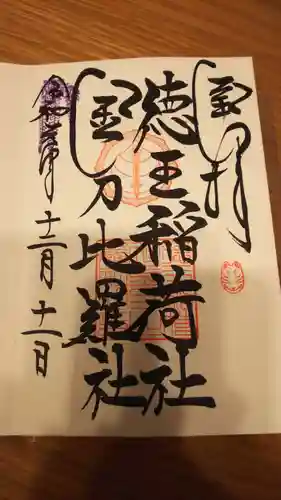 奉拝
徳王稲荷社
金刀比羅社
十二月十一日